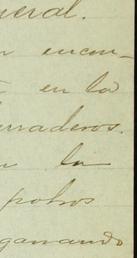 neral.
n encon-
en la
erraderos.
n la
potros
ganando